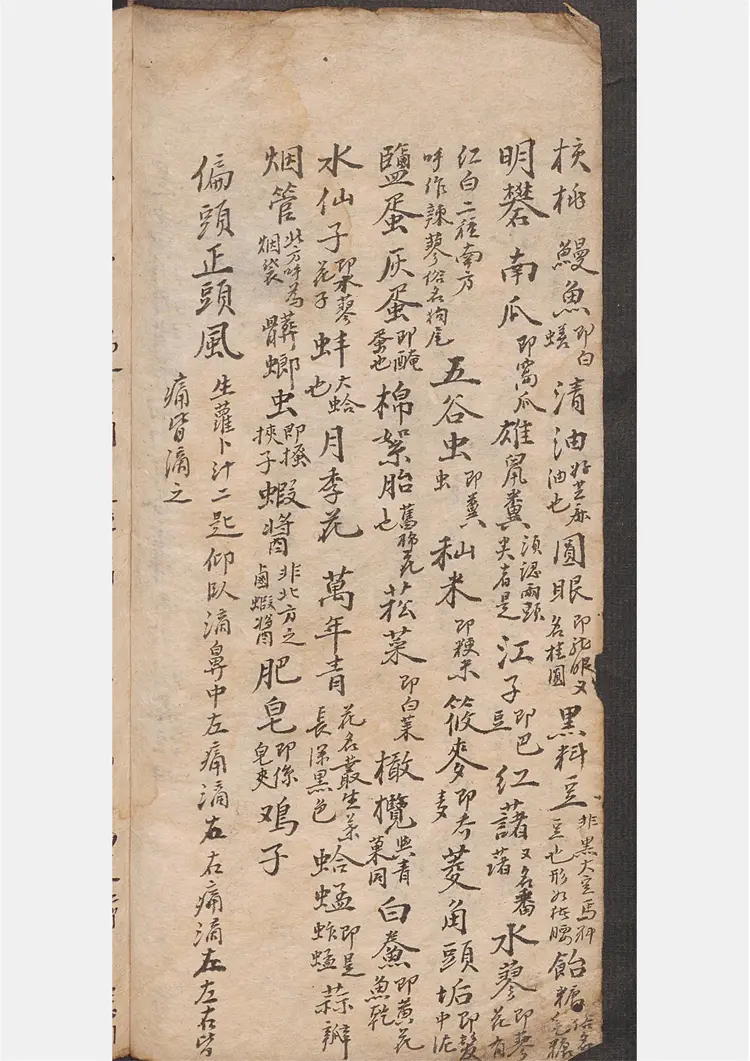 核桃 鰻魚即白鳝 清油好芝麻油也 圓眼即龍眼又名桂圓 黑料豆非黑大豆馬料豆也形如猪腰 飴糖
明礬 南瓜即窩瓜 雄鼠糞須認兩頭尖者是 江子即巴豆 红藷又名番藷 水蓼即蓼花有
红白二種南方呼作辣蓼俗名狗尾 五谷虫即糞虫 秈米即粳米 筱麥即夸麦 菱角 頭垢即髮中泥
鹽蛋 灰蛋即醃蛋也 棉絮胎舊棉花也 菘菜即白菜 橄欖與青菓同 白鯗即黄花魚乾
水仙子即水蓼花子 蚌大蛤也 月季花 萬年青花名叢生葉長深黑色 蛤蜢即是蚱蜢 蒜瓣
烟管北方呼为烟袋 髒螂虫即搔挾子 蝦醬非北方之鹵蝦醬 肥皂即係皂夾 鸡子
偏頭正頭風 生蘿卜汁二匙仰臥滴鼻中左痛滴右右痛滴左左右皆
痛皆滴之